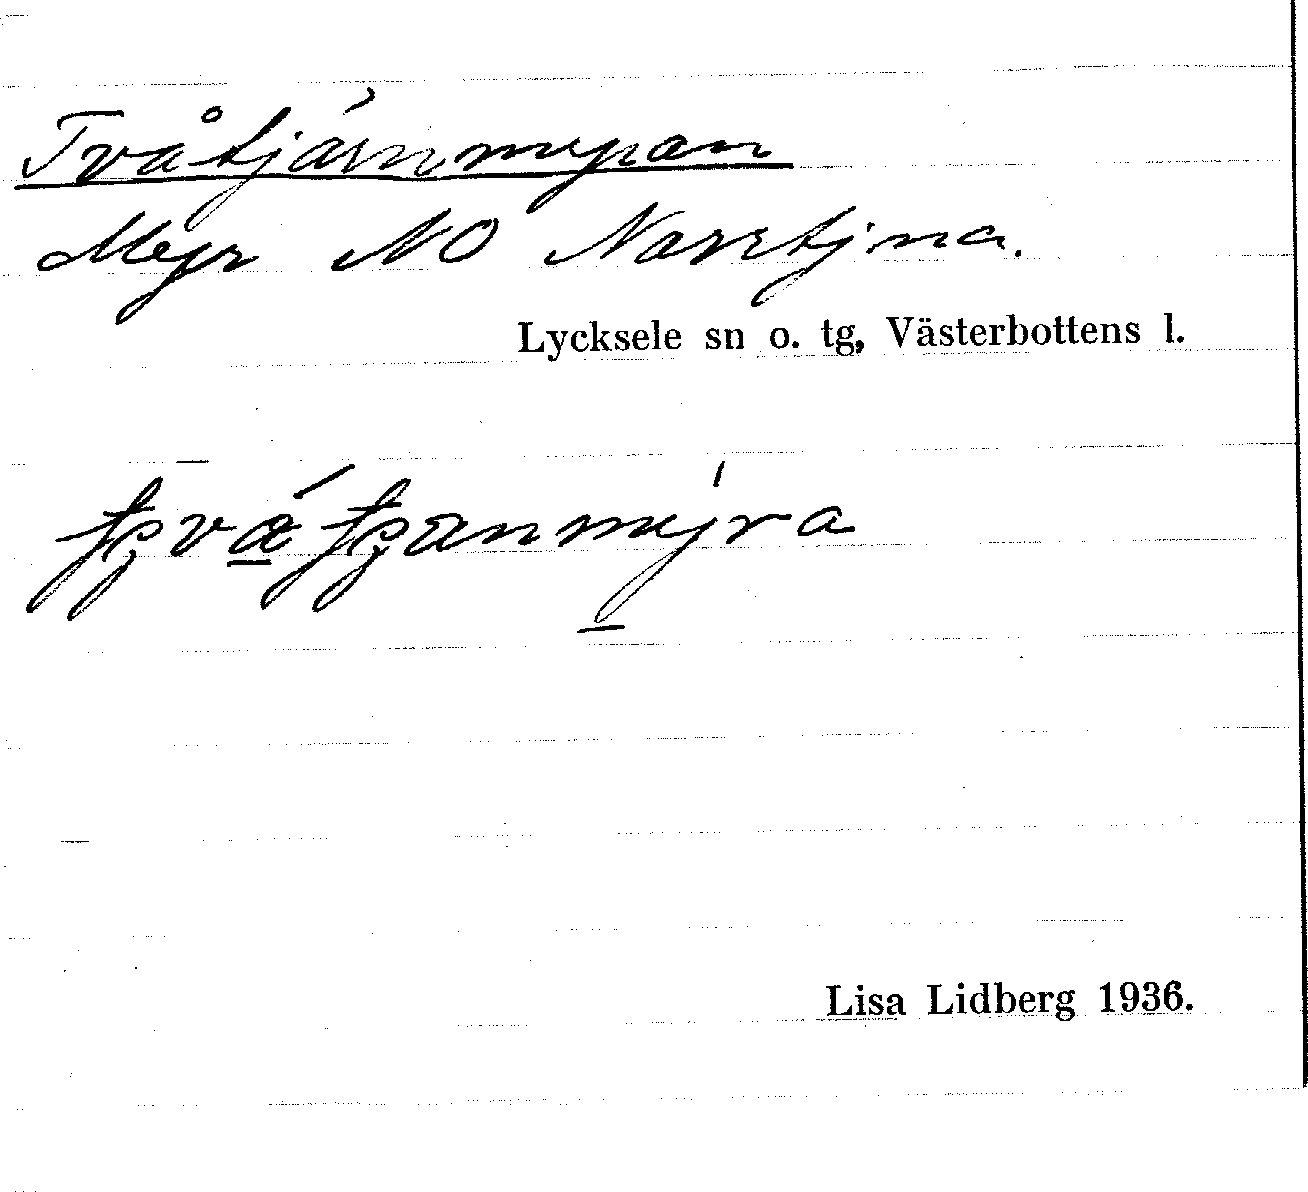 Tvåtjärnmyran
Myr NO Norrtjna.
Lycksele sn o. tg, Västerbottens l.
Lisa Lidberg 1936.